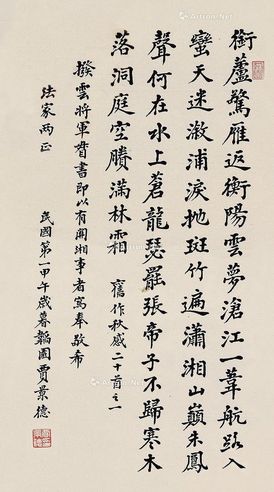 銜蘆驚雁返衡陽雲夢滄江一葦航路入
蠻天迷漵浦淚抛斑竹遍瀟湘山巔朱鳳
聲何在水上蒼龍瑟罷張帝子不歸寒木
落洞庭空賸滿林霜
舊作秋感二十首之一
撥雲將軍費書即以有關湘事者寫奉敬希
法家兩正
民國第一甲午歲暮韜園賈景德